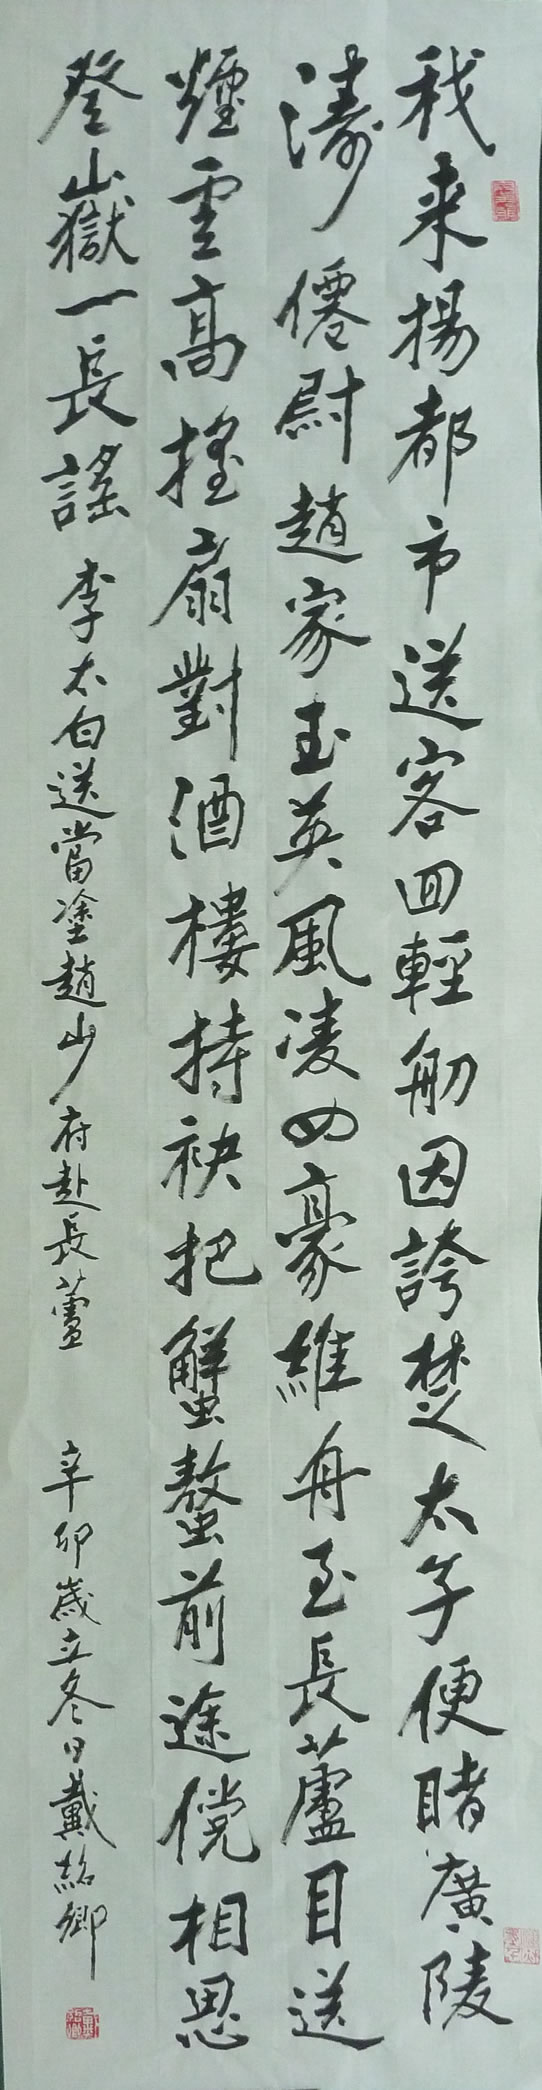 我来揚都市送客回輕舠因誇楚太子便睹廣陵
濤僊尉趙家玉英風凌四豪維舟至長蘆目送
煙雲高摇扇對酒樓持袂把蟹螯前途儻相思
登山嶽一長謠 李太白送當塗趙少府赴長蘆 辛卯歲立冬日戴紹卿